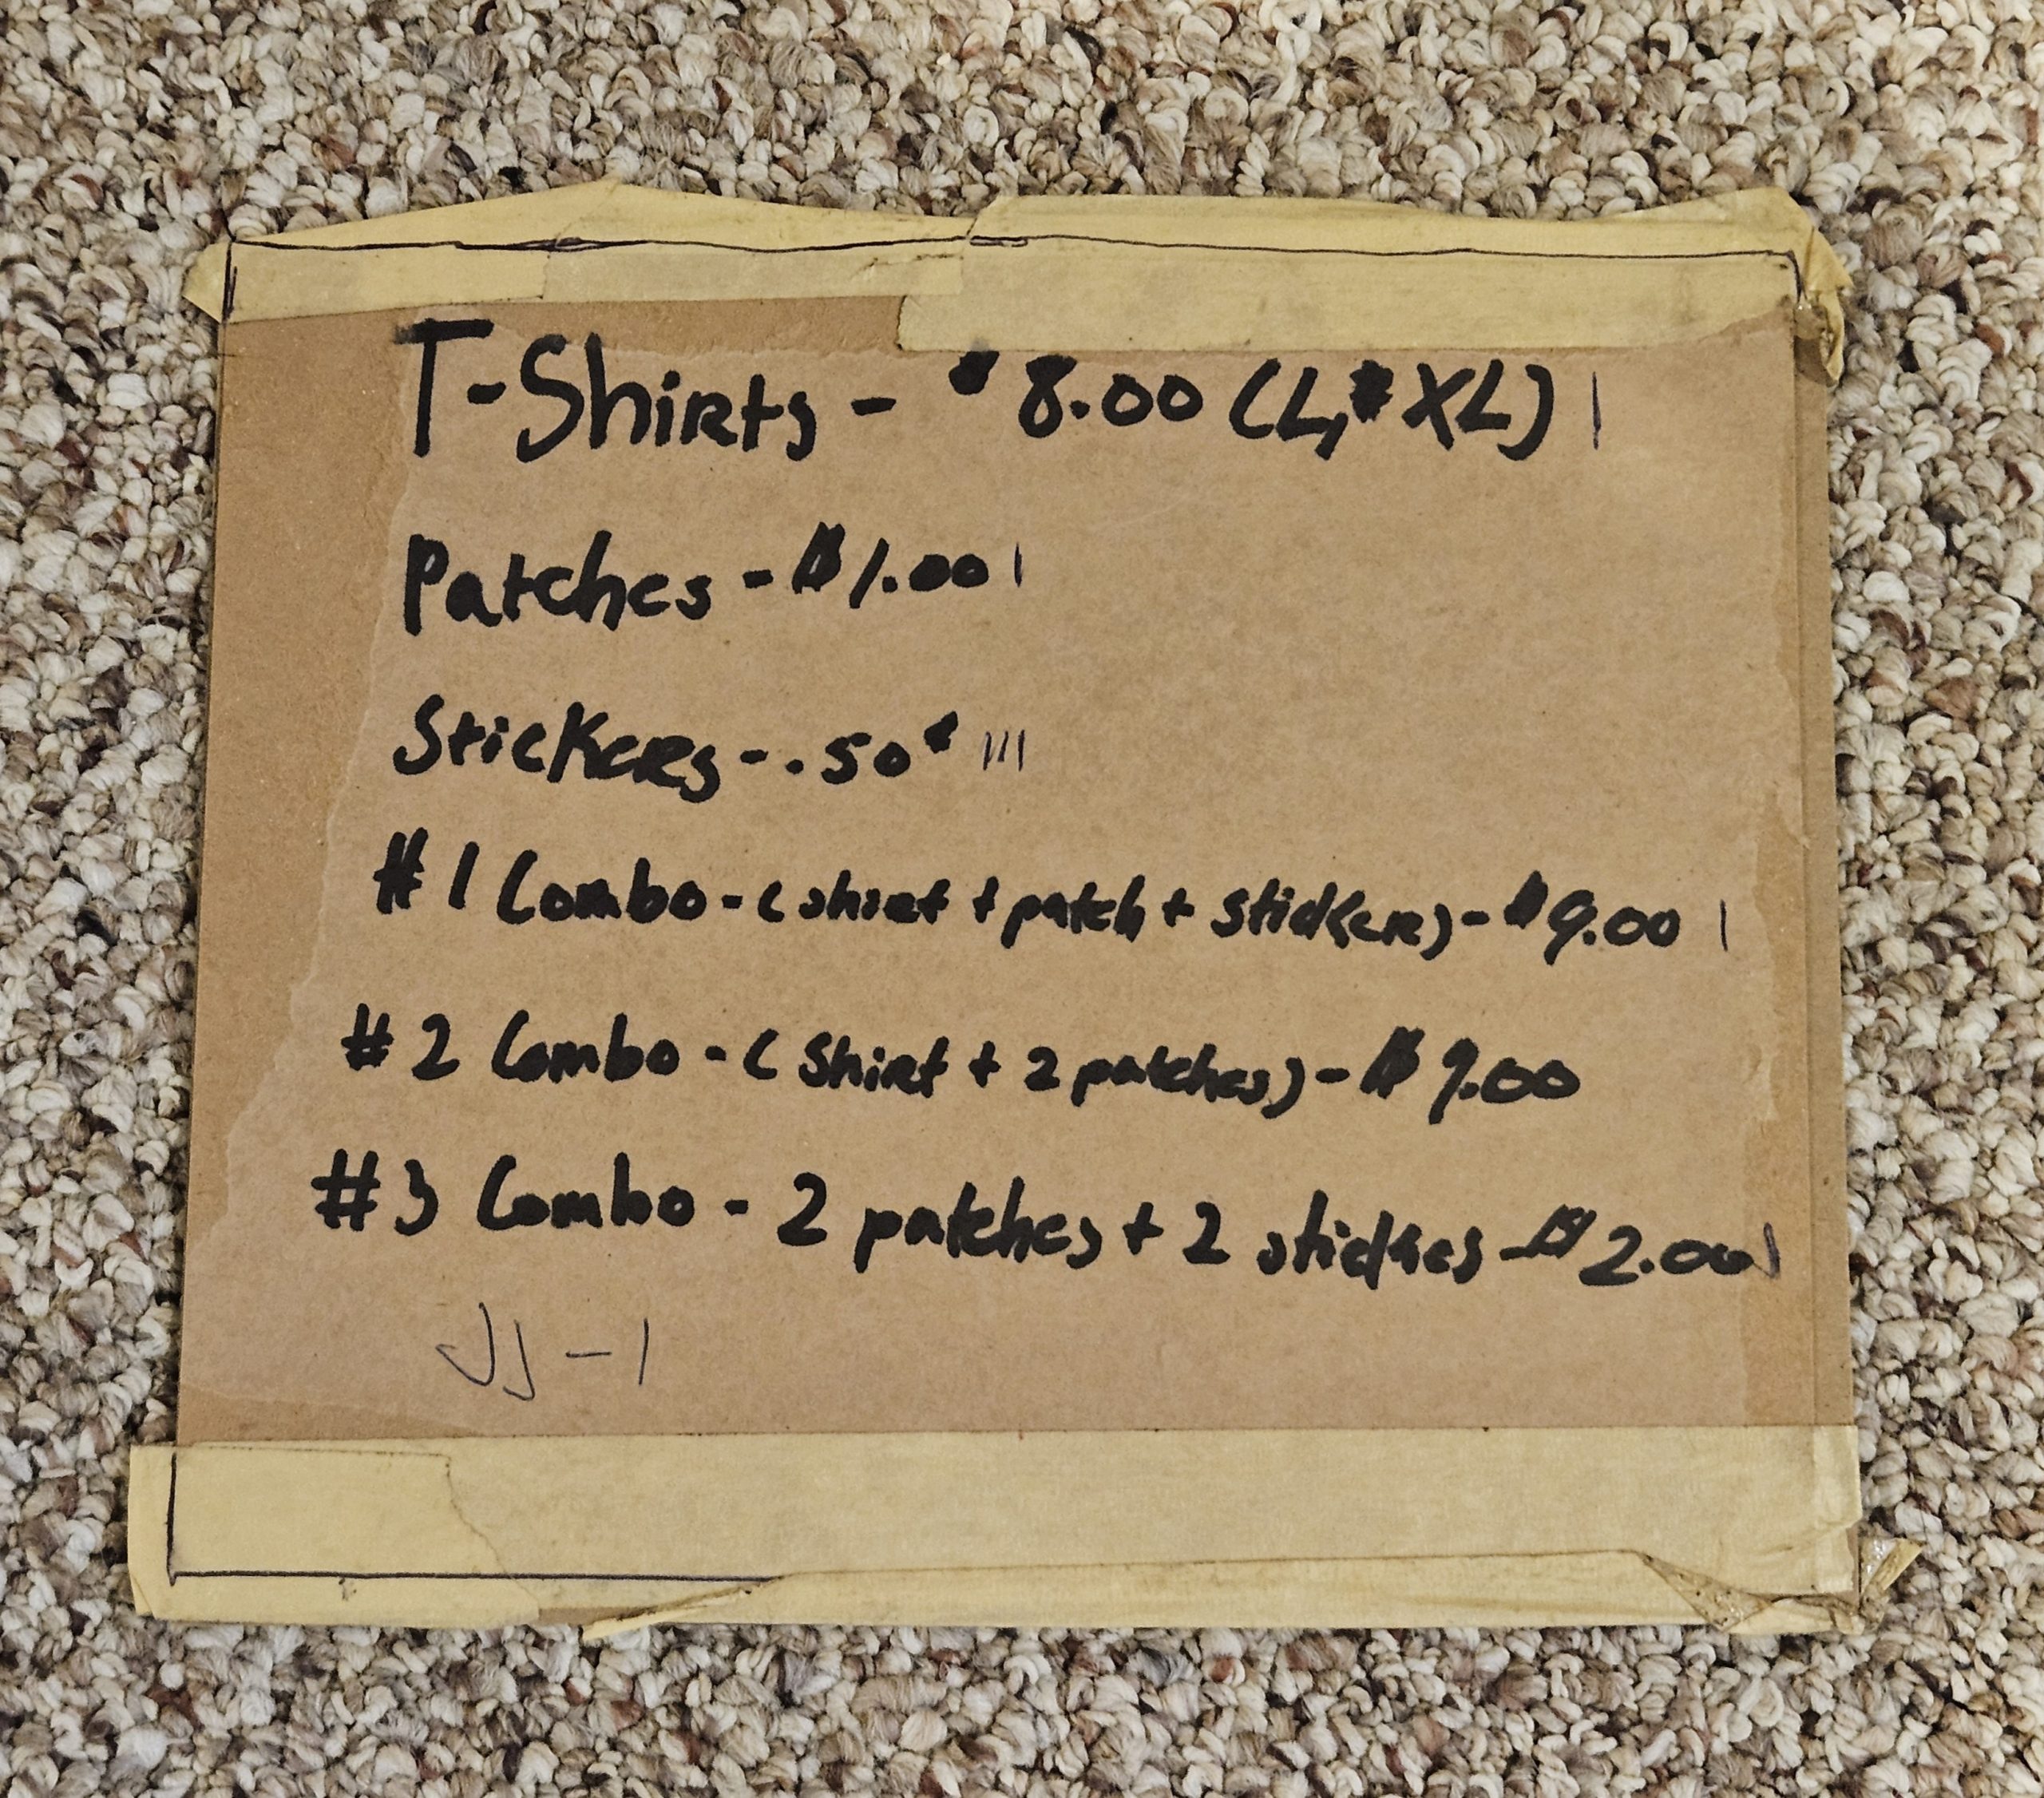 T-Shirts - $8.00 (L, XL) |
Patches - $1.00 |
Stickers - .50¢ |||
#1 Combo - (shirt + patch + sticker) - $9.00 |
#2 Combo - (Shirt + 2 patches) - $9.00
#3 Combo - 2 patches + 2 stickes - $2.00 |
JJ - 1